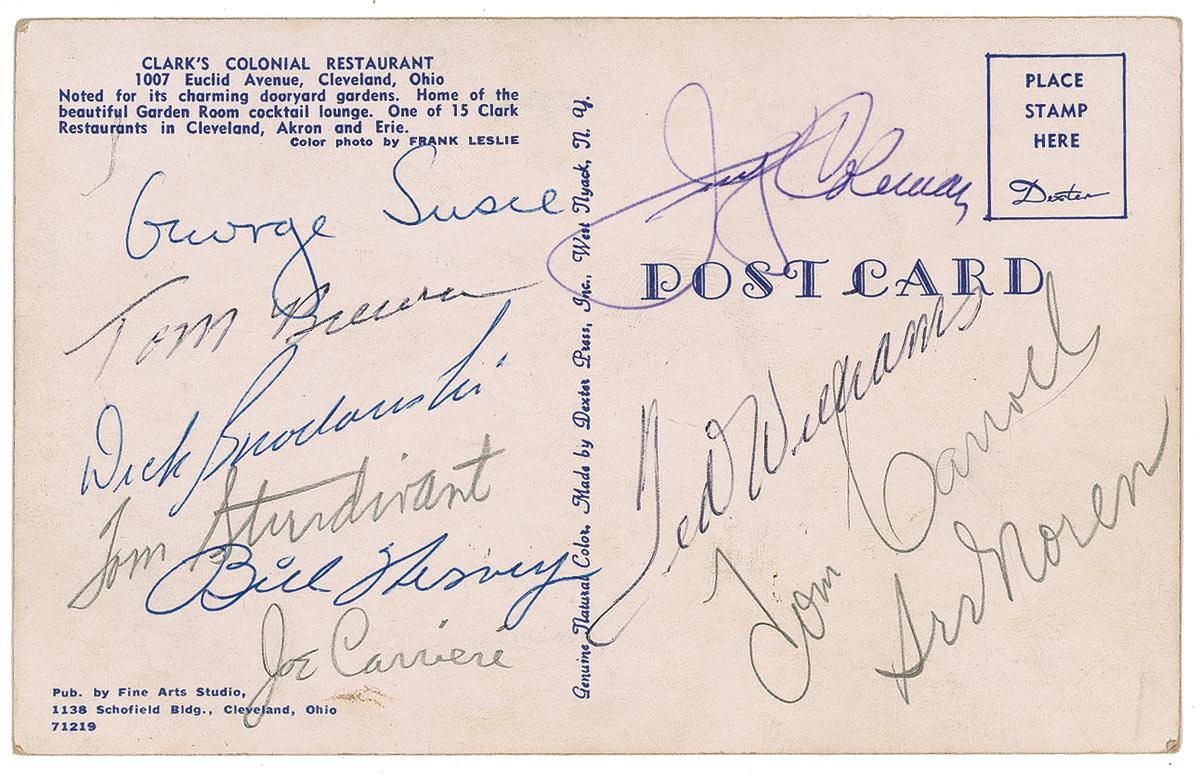 CLARK'S COLONIAL RESTAURANT
1007 Euclid Avenue, Cleveland, Ohio
Noted for its charming dooryard gardens. Home of the
beautiful Garden Room cocktail lounge. One of 15 Clark
Restaurants in Cleveland, Akron and Erie.
Color photo by FRANK LESLIE
George Susce
Tom Brewer
Dick Brodowski
Tom Sturdivant
Bill
Joe Carrieri
Pub. by Fine Arts Studio,
1138 Schofield Bldg., Cleveland, Ohio
71219
Genuine Natural Color. Made by Dexter Press, Inc., West Nyack, N. Y.
PLACE
STAMP
HERE
Dexter
Jerry Coleman
POST CARD
Ted Williams
Tom Carroll
Irv Noren